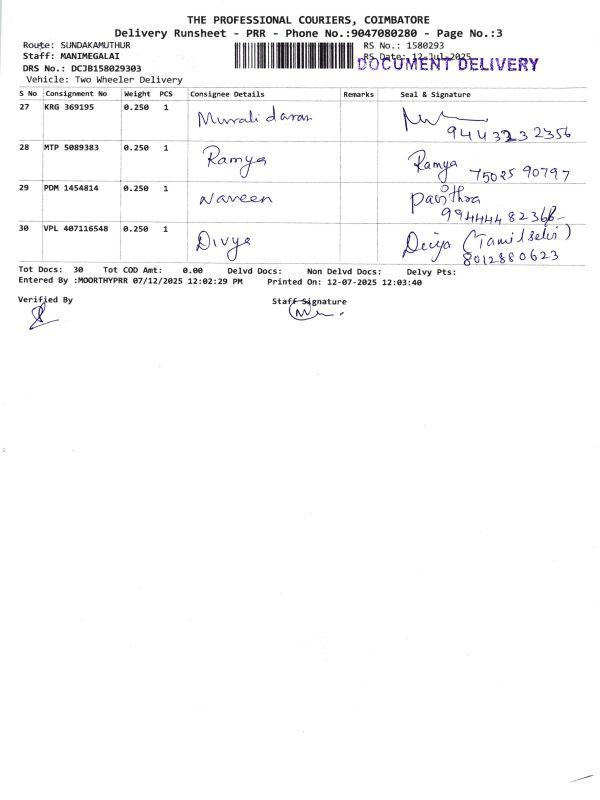 THE PROFESSIONAL COURIERS, COIMBATORE
Delivery Runsheet - PRR - Phone No.:9047080280 - Page No.:3
Route: SUNDAKAMUTHUR RS No.: 1580293
Staff: MANIMEGALAI RS Date: 12-Jul-2025
DOCUMENT DELIVERY
DRS No.: DCJB158029303
Vehicle: Two Wheeler Delivery
S No Consignment No Weight PCS Consignee Details Remarks Seal & Signature
27 KRG 369195 0.250 1 Murali daran
9443232356
28 MTP 5089383 0.250 1 Ramya Ramya 75025 90797
29 PDM 1454814 0.250 1 Naveen Pavithra
9944448236
30 VPL 407116548 0.250 1 Divya Divya (Tamilselvi)
8012880623
Tot Docs: 30 Tot COD Amt: 0.00 Delvd Docs: Non Delvd Docs: Delvy Pts:
Entered By :MOORTHYPRR 07/12/2025 12:02:29 PM Printed On: 12-07-2025 12:03:40
Verified By Staff Signature